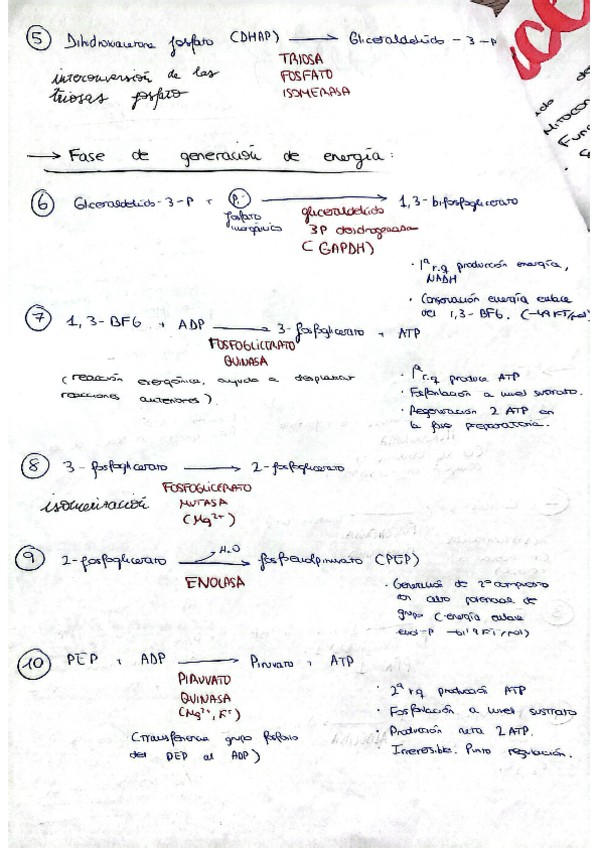 5 Dihidroxiacetona fosfato (DHAP) → Gliceraldehído-3-P
TRIOSA
FOSFATO
ISOMERASA
interconversión de las
triosas fosfato
→ Fase de generación de energía:
6 Gliceraldehído-3-P + Pi → 1,3-bifosfoglicerato
fosfato
inorgánico
gliceraldehído
3P deshidrogenasa
(GAPDH)
· 1ª rq producción energía,
NADH
· Conservación energía enlace
del 1,3-BFG.
7 1,3-BFG + ADP → 3-fosfoglicerato + ATP
FOSFOGLICERATO
QUINASA
(reacción exergónica, ayuda a desplazar
reacciones anteriores).
· 1ª rq produce ATP
· Fosforilación a nivel sustrato.
· Regeneración 2 ATP en
la fase preparatoria.
8 3-fosfoglicerato → 2-fosfoglicerato
FOSFOGLICERATO
MUTASA
(Mg2+)
isomerización
9 2-fosfoglicerato → fosfoenolpiruvato (PEP)
H2O
ENOLASA
· Generación de 2º compuesto
con alto potencial de
grupo (energía enlace
enol-P
10 PEP + ADP → Piruvato + ATP
PIRUVATO
QUINASA
(Mg2+, K+)
(transferencia grupo fosforio
del PEP al ADP)
· 2ª rq producción ATP
· Fosforilación a nivel sustrato
· Producción neta 2 ATP.
· Irreversible. Punto regulación.